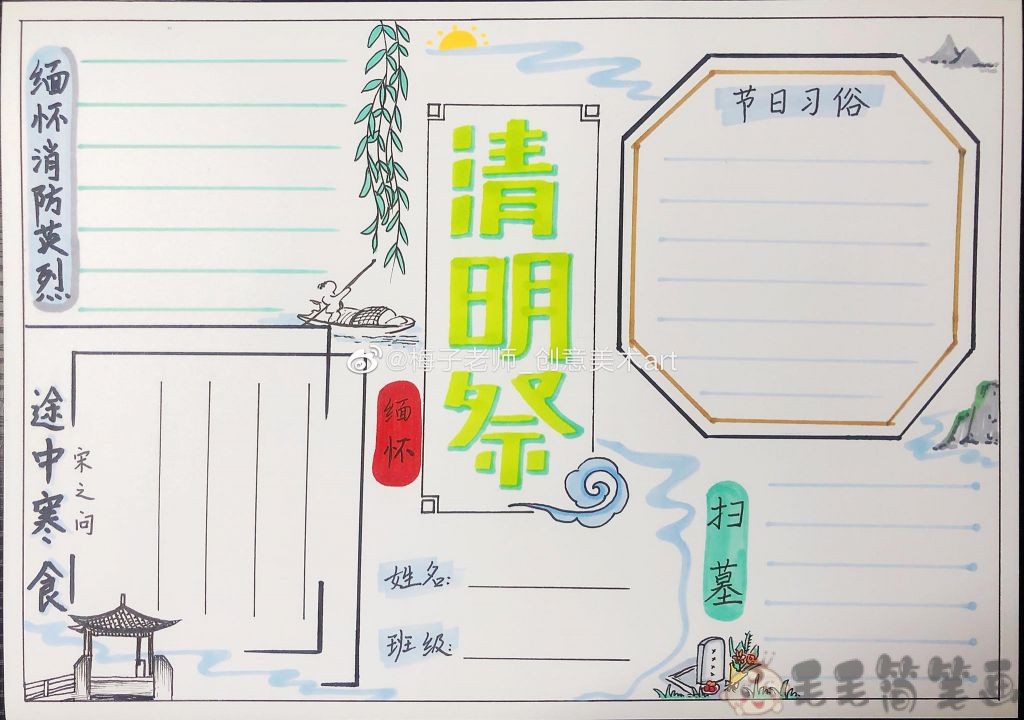 缅怀消防英烈
清明祭
节日习俗
@梅子老师 创意美术art
缅怀
途中寒食
宋之问
姓名:
班级:
扫墓
毛毛简笔画